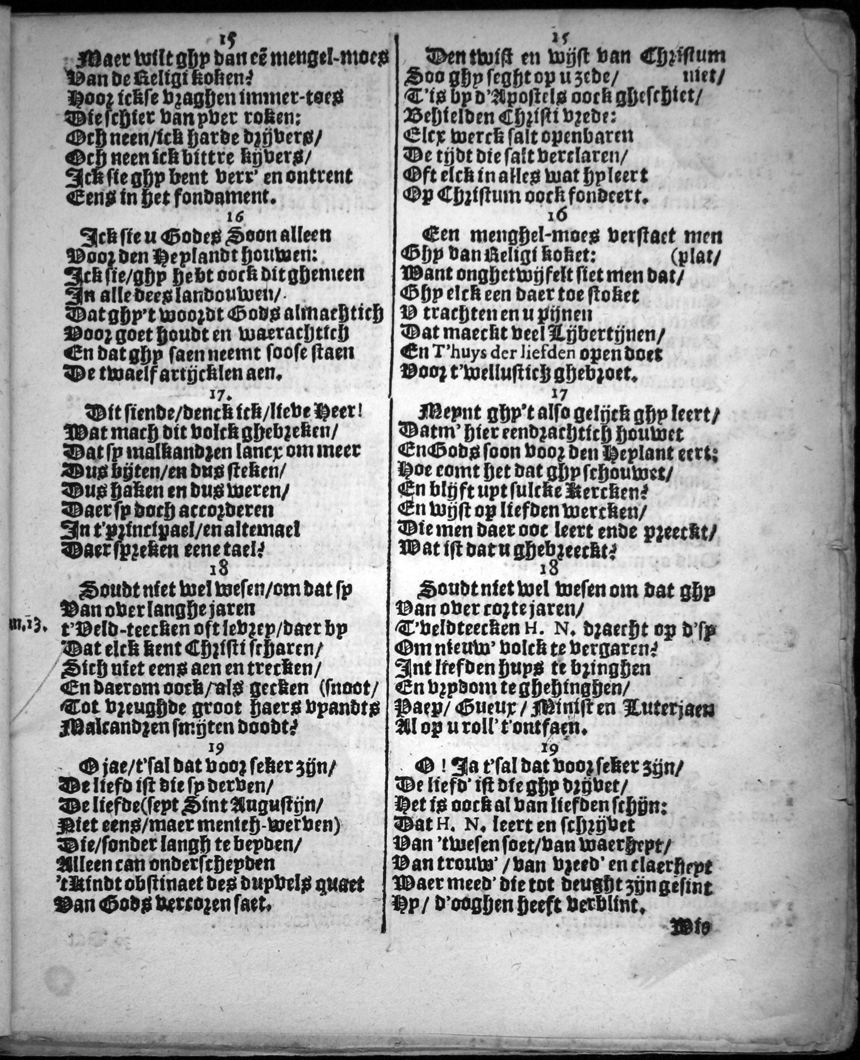 15
Maer wilt ghy dan eẽ mengel-moes
Van de Religi koken?
Hoor ickse vraghen immer-toes
Die schier van yver roken:
Och neen/ick harde drijvers/
Och neen ick bittre kijvers/
Ick sie ghy bent verr' en ontrent
Eens in het fondament.
16
Ick sie u Godes Soon alleen
Voor den Heylandt houwen:
Ick sie/ghy hebt oock dit ghemeen
In alle dees landouwen/
Dat ghy't woordt Gods almachtich
Voor goet houdt en waerachtich
En dat ghy saen neemt soose staen
De twaelf artijcklen aen.
17.
Dit siende/denck ick/lieve Heer!
Wat mach dit volck ghebreken/
Dat sy malkandren lancx om meer
Dus bijten/en dus steken/
Dus haken en dus weren/
Daer sy doch accorderen
In t'principael/en altemael
Daer spreken eene tael?
18
Soudt niet wel wesen/om dat sy
Van over langhe jaren
m.13.
t'Veld-teecken oft levrey/daer by
Dat elck kent Christi scharen/
Sich niet eens aen en trecken/
En daerom oock/als gecken (snoot/
Tot vreughde groot haers vyandts
Malcandren smijten doodt?
19
O jae/t'sal dat voor seker zijn/
De liefd ist die sy derven/
De liefde(seyt Sint Augustijn/
Niet eens/maer menich-werven)
Die/sonder langh te beyden/
Alleen can onderscheyden
't Kindt obstinaet des duyvels quaet
Van Gods vercoren saet.
15
Den twist en wijst van Christum
Soo ghy seght op u zede/ niet/
T'is by d'Apostels oock gheschiet/
Behielden Christi vrede:
Elcx werck salt openbaren
De tijdt die salt verclaren/
Oft elck in alles wat hy leert
Op Christum oock fondeert.
16
Een menghel-moes verstaet men
Ghy van Religi koket: (plat/
Want onghetwijfelt siet men dat/
Ghy elck een daer toe stoket
V trachten en u pijnen
Dat maeckt veel Lijbertijnen/
En T'huys der liefden open doet
Voor t'wellustich ghebroet.
17
Meynt ghy't also gelijck ghy leert/
Datm' hier eendrachtich houwet
En Gods soon voor den Heylant eert:
Hoe comt het dat ghy schouwet/
En blijft uyt sulcke Kercken?
En wijst op liefden wercken/
Die men daer ooc leert ende preeckt/
Wat ist dat u ghebreeckt?
18
Soudt niet wel wesen om dat ghy
Van over corte jaren/
T'veldteecken H. N. draecht op d'sy
Om nieuw' volck te vergaren?
Int liefden huys te bringhen
En vrydom te ghehinghen/
Paep/ Gueux/ Minist en Luterjaen
Al op u roll' t'ontfaen.
19
O! Ja t'sal dat voor seker zijn/
De liefd' ist die ghy drijvet/
Het is oock al van liefden schijn:
Dat H. N. leert en schrijvet
Van 'twesen soet/van waerheyt/
Van trouw'/van vreed' en claerheyt
Waer meed' die tot deught zijn gesint
Hy/ d'ooghen heeft verblint.
Wie